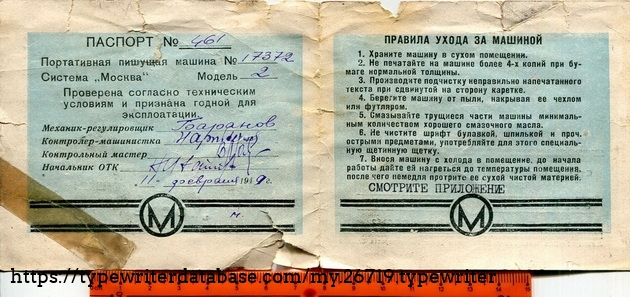 ПАСПОРТ № 461
Портативная пишущая машина № 17372
Система „Москва" Модель 2
Проверена согласно техническим
условиям и признана годной для
эксплоатации.
Механик-регулировщик
Контролер-машинистка
Контрольный мастер
Начальник ОТК
11 февраля 19 г.
М
м
ПРАВИЛА УХОДА ЗА МАШИНОЙ
1. Храните машину в сухом помещении.
2. Не печатайте на машине более 4-х копий при бу-
маге нормальной толщины.
3. Производите подчистку неправильно напечатанного
текста при сдвинутой на сторону каретке.
4. Берегите машину от пыли, накрывая ее чехлом
или футляром.
5. Смазывайте трущиеся части машины минималь-
ным количеством хорошего смазочного масла.
6. Не чистите шрифт булавкой, шпилькой и проч.
острыми предметами, употребляйте для этого специаль-
ную щетинную щетку.
7. Внося машину с холода в помещение, до начала
работы дайте ей нагреться до температуры помещения,
после чего немедля протрите ее сухой чистой материей.
СМОТРИТЕ ПРИЛОЖЕНИЕ
М
https://typewriterdatabase.com/my.26719.typewriter